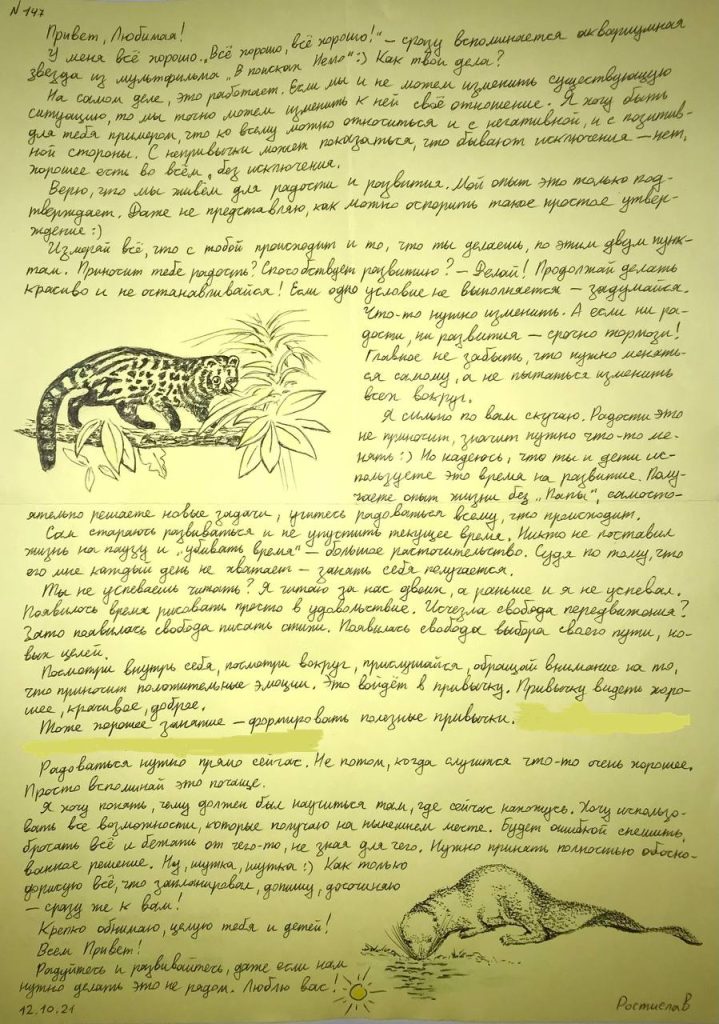 N 147
Привет, Любимая!
У меня всё хорошо. „Всё хорошо, всё хорошо!“ – сразу вспоминается аквариумная
звезда из мультфильма „В поисках Немо“ :) Как твои дела?
На самом деле, это работает. Если мы и не можем изменить существующую
ситуацию, то мы точно можем изменить к ней своё отношение. Я хочу быть
для тебя примером, что ко всему можно относиться и с негативной, и с позитив-
ной стороны. С непривычки может показаться, что бывают исключения – нет,
хорошее есть во всём, без исключения.
Верю, что мы живём для радости и развития. Мой опыт это только под-
тверждает. Даже не представляю, как можно оспорить такое простое утвер-
ждение :)
Измеряй всё, что с тобой происходит и то, что ты делаешь, по этим двум пунк-
там. Приносит тебе радость? Способствует развитию? – Делай! Продолжай делать
красиво и не останавливайся! Если одно условие не выполняется – задумайся.
Что-то нужно изменить. А если ни ра-
дости, ни развития – срочно тормози!
Главное не забыть, что нужно менять-
ся самому, а не пытаться изменить
всех вокруг.
Я сильно по вам скучаю. Радости это
не приносит, значит нужно что-то ме-
нять :) Но надеюсь, что ты и дети ис-
пользуете это время на развитие. Полу-
чаете опыт жизни без „Папы“, самосто-
ятельно решаете новые задачи, учитесь радоваться всему, что происходит.
Сам стараюсь развиваться и не упустить текущее время. Никто не поставил
жизнь на паузу и „убивать время“ – большое расточительство. Судя по тому, что
его мне каждый день не хватает – занять себя получается.
Ты не успеваешь читать? Я читаю за нас двоих, а раньше и я не успевал.
Появилось время рисовать просто в удовольствие. Исчезла свобода передвижения?
Зато появилась свобода писать стихи. Появилась свобода выбора своего пути, но-
вых целей.
Посмотри внутрь себя, посмотри вокруг, прислушайся, обращай внимание на то,
что приносит положительные эмоции. Это войдёт в привычку. Привычку видеть хоро-
шее, красивое, доброе.
Тоже хорошее занятие – формировать полезные привычки.
Радоваться нужно прямо сейчас. Не потом, когда случится что-то очень хорошее.
Просто вспоминай это почаще.
Я хочу понять, чему должен был научиться там, где сейчас нахожусь. Хочу использо-
вать все возможности, которые получаю на нынешнем месте. Будет ошибкой спешить,
бросать всё и бежать от чего-то, не зная для чего. Нужно принять полностью обосно-
ванное решение. Ну, шутка, шутка :) Как только
дорисую всё, что запланировал, допишу, досочиняю
– сразу же к вам!
Крепко обнимаю, целую тебя и детей!
Всем Привет!
Радуйтесь и развивайтесь, даже если нам
нужно делать это не рядом. Люблю вас!
12.10.21
Ростислав